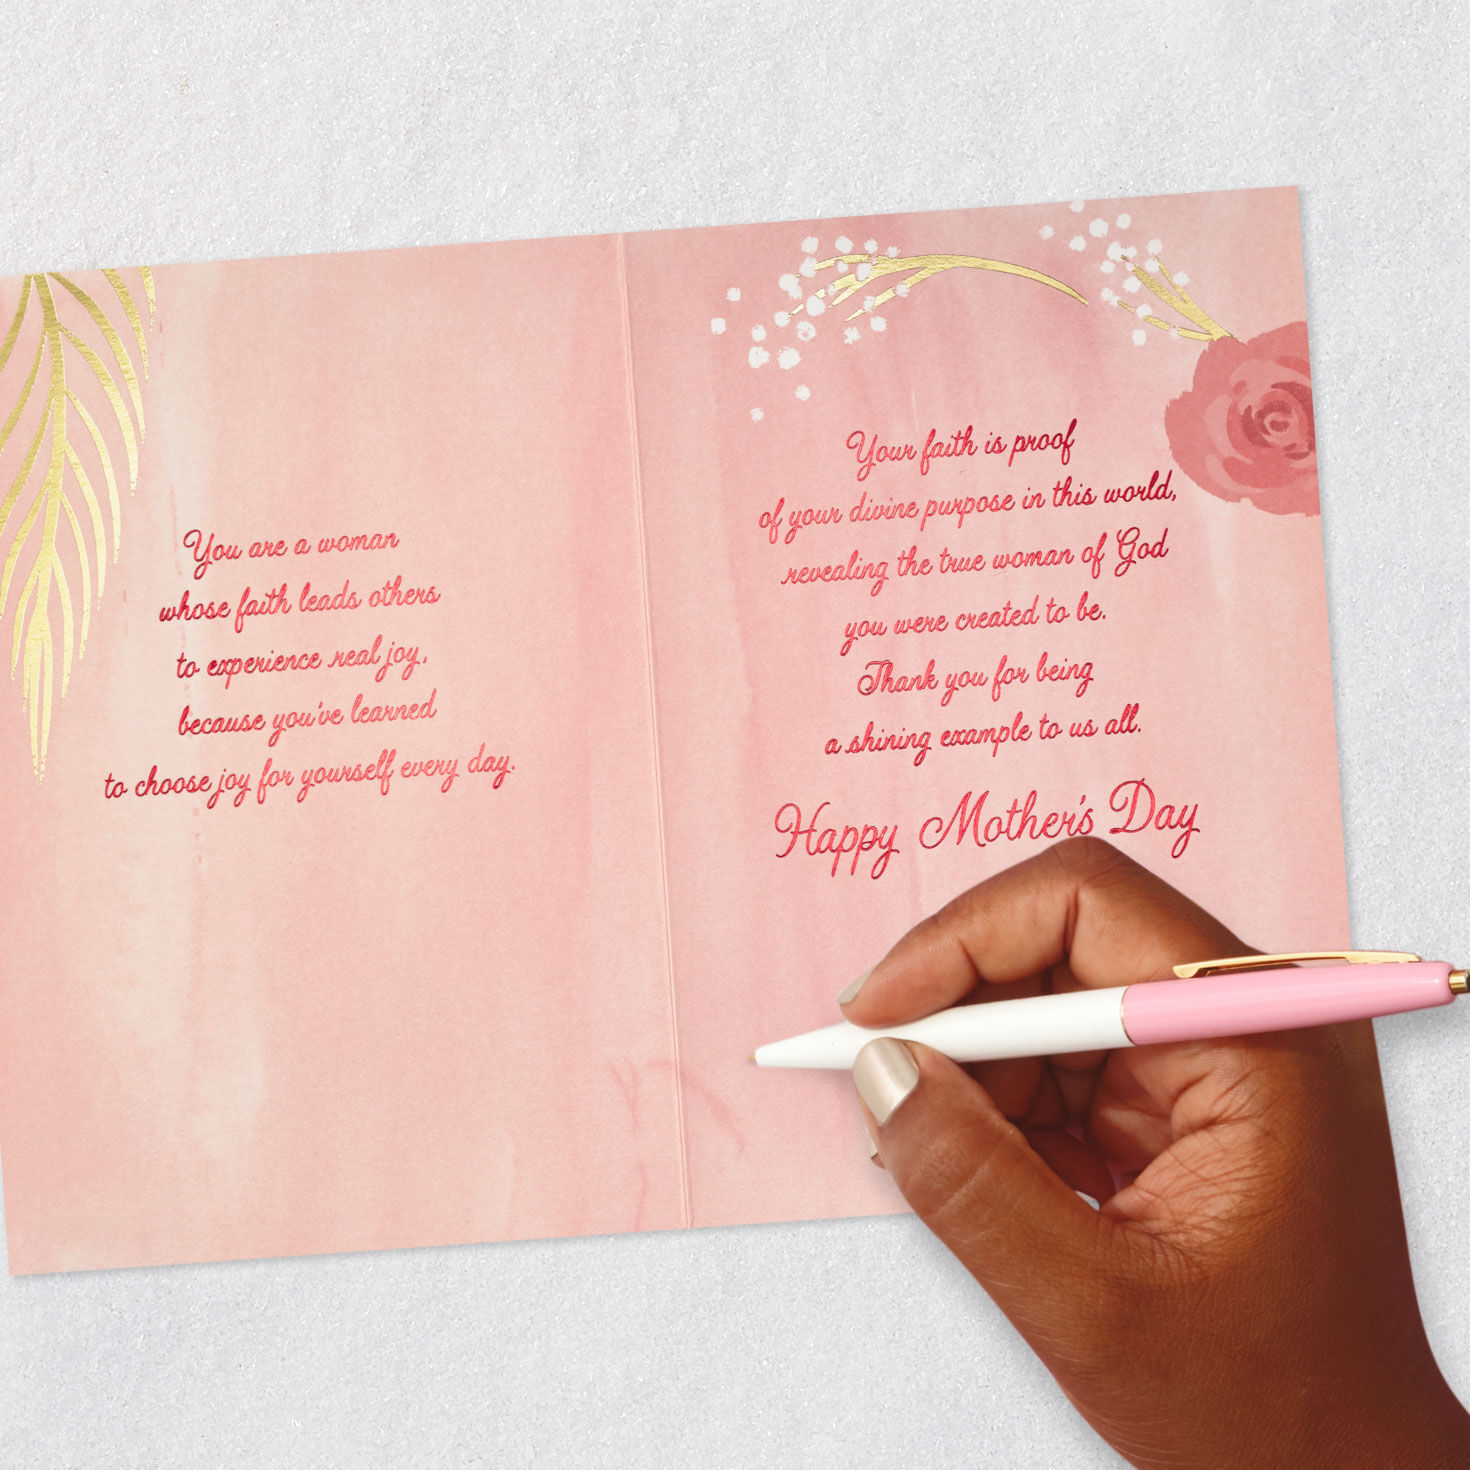 You are a woman
whose faith leads others
to experience real joy,
because you've learned
to choose joy for yourself every day.
Your faith is proof
of your divine purpose in this world,
revealing the true woman of God
you were created to be.
Thank you for being
a shining example to us all.
Happy Mother's Day